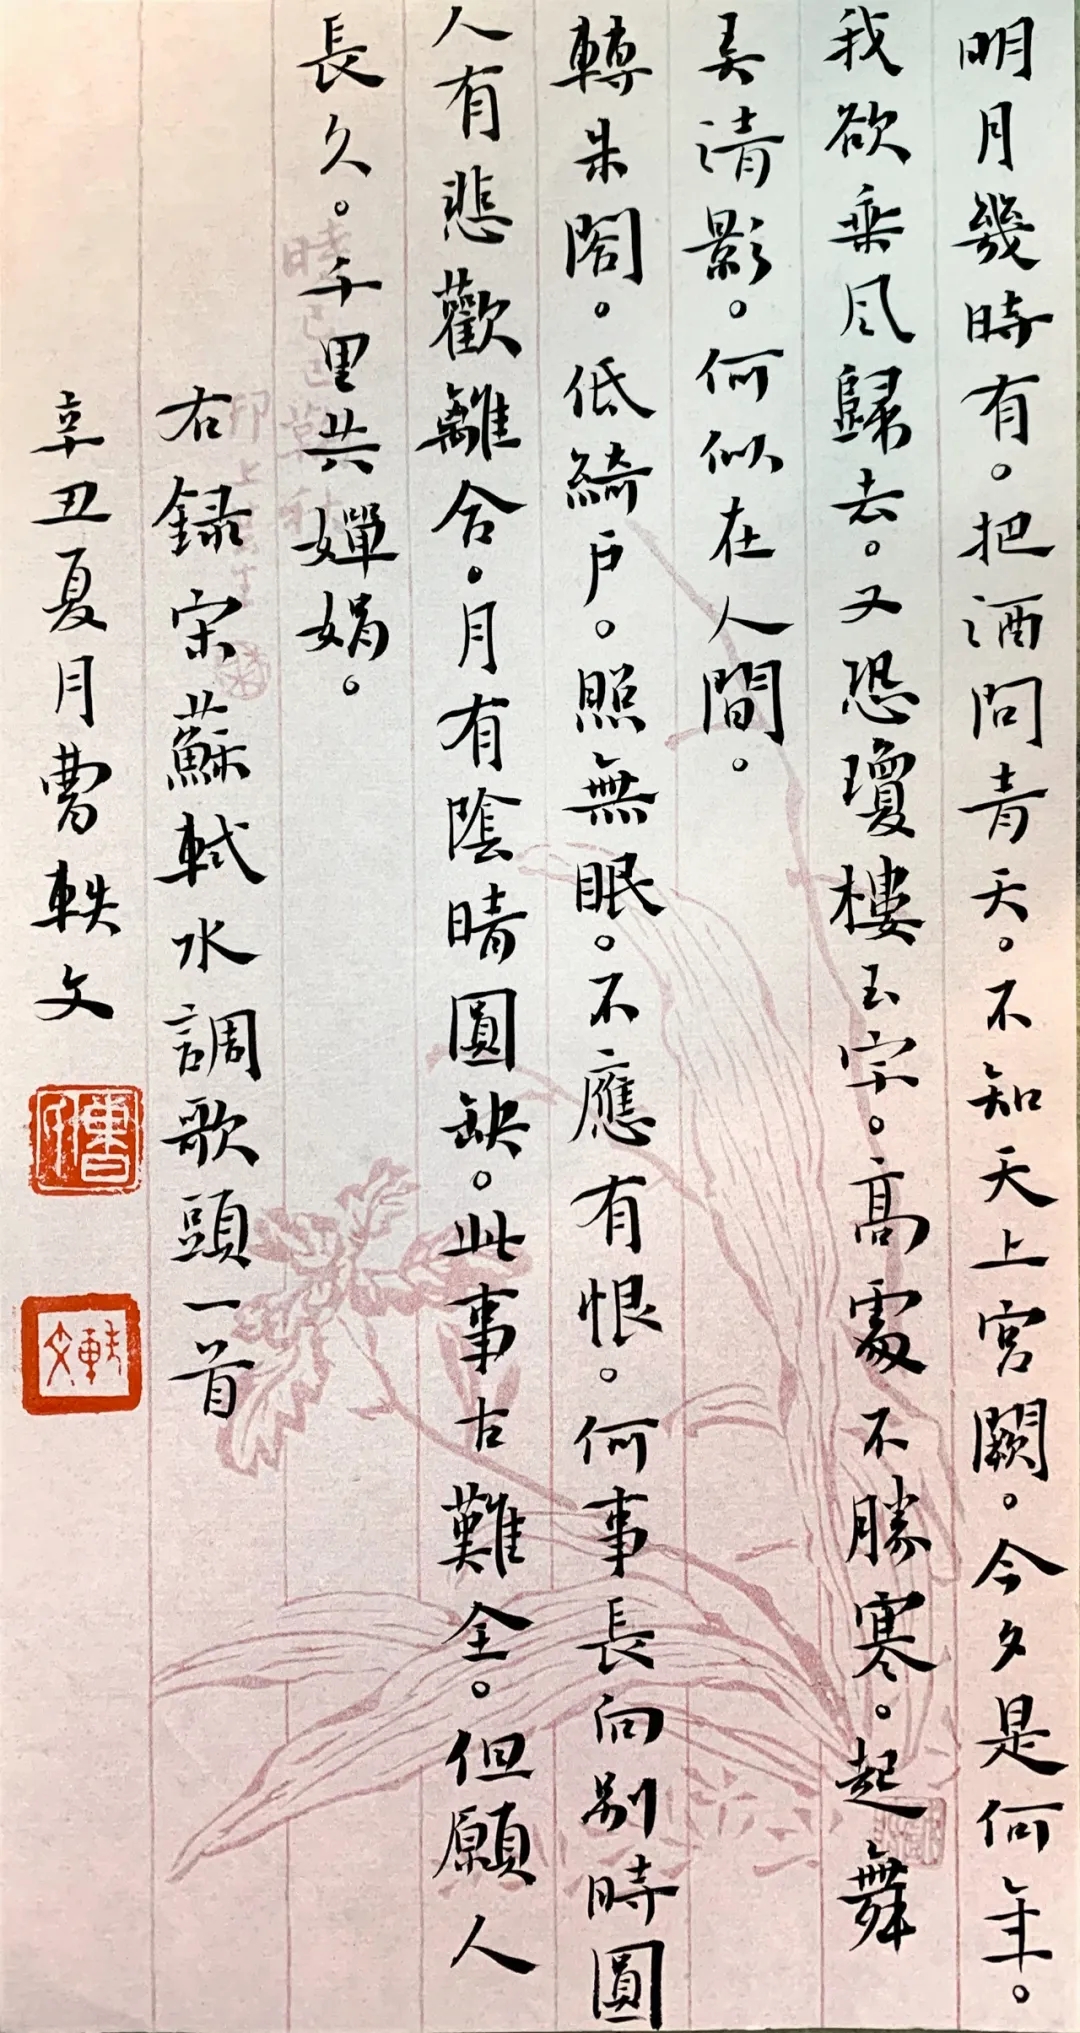 明月幾時有。把酒問青天。不知天上宮闕。今夕是何年。
我欲乘风歸去。又恐瓊樓玉宇。高處不勝寒。起舞
弄清影。何似在人間。
轉朱閣。低綺戶。照無眠。不應有恨。何事長向別時圓
人有悲歡離合。月有陰晴圓缺。此事古難全。但願人
長久。千里共嬋娟。
右録宋蘇軾水調歌頭一首
辛丑夏月曹軼文
軼文